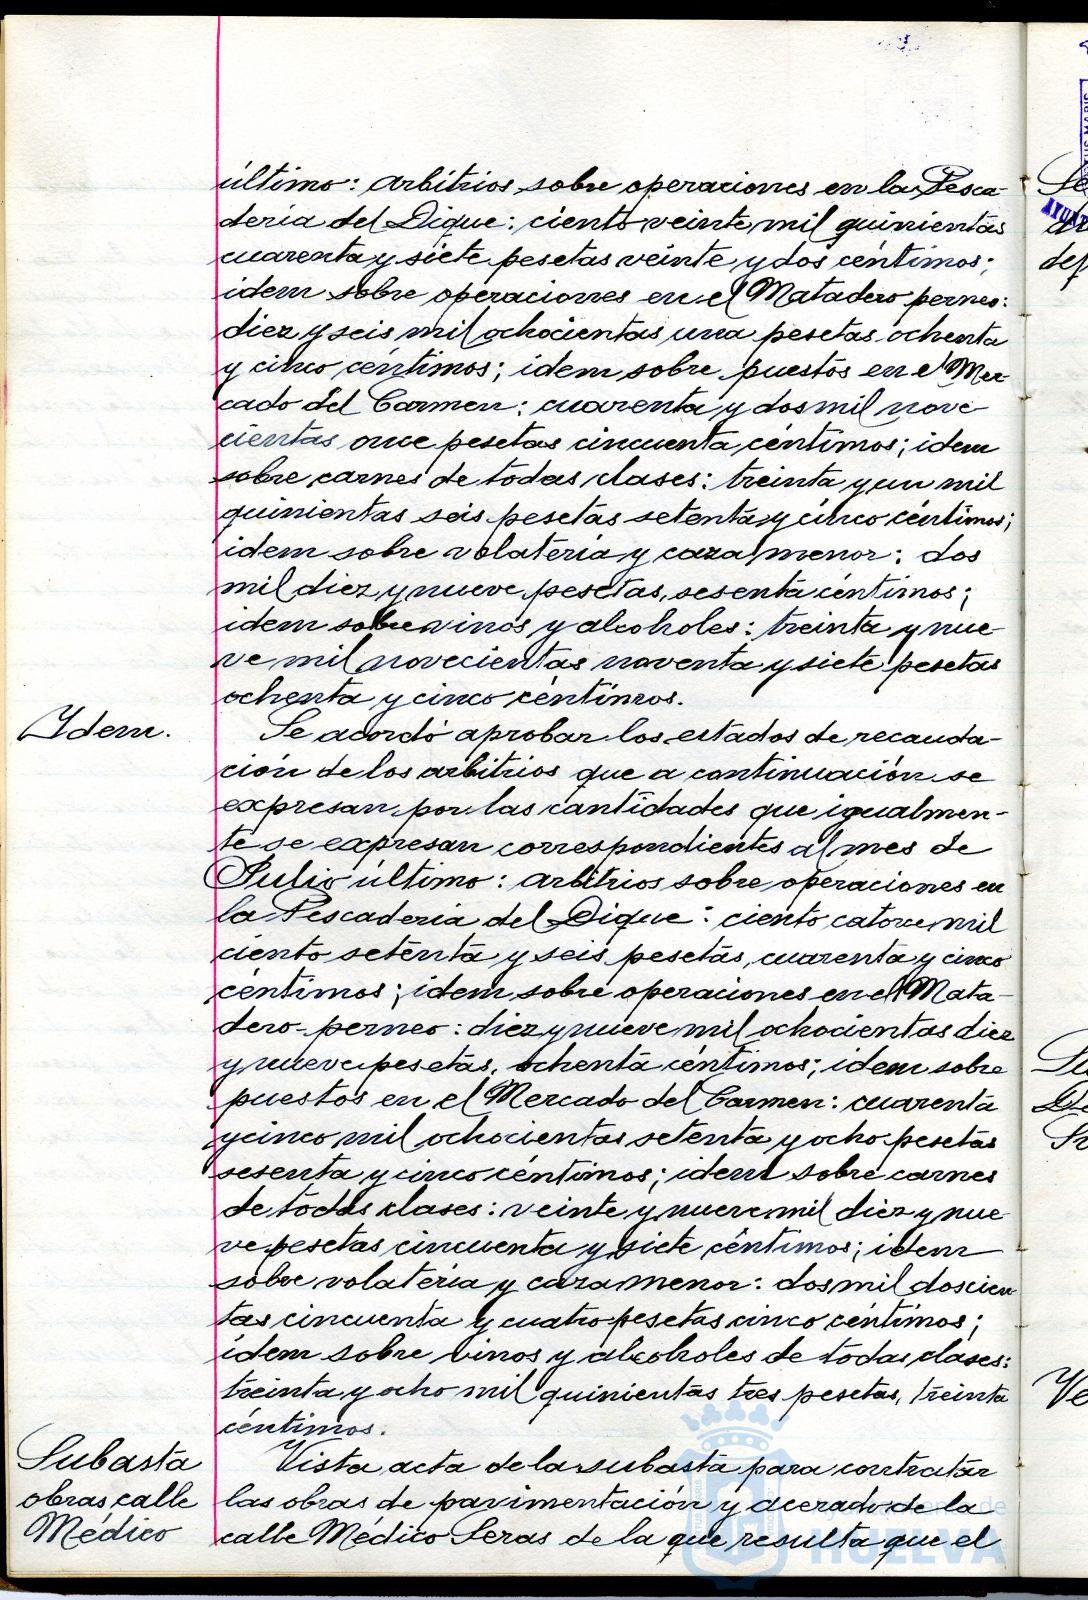 último: arbitrios sobre operaciones en la Pesca-
dería del Dique: ciento veinte mil quinientas
cuarenta y siete pesetas veinte y dos céntimos;
idem sobre operaciones en el Matadero perneo:
diez y seis mil ochocientas una pesetas ochenta
y cinco céntimos; idem sobre puestos en el Mer-
cado del Carmen: cuarenta y dos mil nove-
cientas once pesetas cincuenta céntimos; idem
sobre carnes de todas clases: treinta y un mil
quinientas seis pesetas setenta y cinco céntimos;
idem sobre volatería y caza menor: dos
mil diez y nueve pesetas, sesenta céntimos;
idem sobre vinos y alcoholes: treinta y nue-
ve mil novecientas noventa y siete pesetas
ochenta y cinco céntimos.
Ydem.
Se acordó aprobar los estados de recauda-
ción de los arbitrios que a continuación se
expresan por las cantidades que igualmen-
te se expresan correspondientes al mes de
Julio último: arbitrios sobre operaciones en
la Pescadería del Dique: ciento catorce mil
ciento setenta y seis pesetas, cuarenta y cinco
céntimos; idem sobre operaciones en el Mata-
dero-perneo: diez y nueve mil ochocientas diez
y nueve pesetas, ochenta céntimos; idem sobre
puestos en el Mercado del Carmen: cuarenta
y cinco mil ochocientas setenta y ocho pesetas
sesenta y cinco céntimos; idem sobre carnes
de todas clases: veinte y nueve mil diez y nue-
ve pesetas cincuenta y siete céntimos; idem
sobre volatería y caza menor: dos mil doscien-
tas cincuenta y cuatro pesetas cinco céntimos;
idem sobre vinos y alcoholes de todas clases:
treinta y ocho mil quinientas tres pesetas, treinta
céntimos.
Subasta
obras calle
Médico
Vista acta de la subasta para contratar
las obras de pavimentación y acerado de la
calle Médico Seras de la que resulta que el
Ayuntamiento de
HUELVA